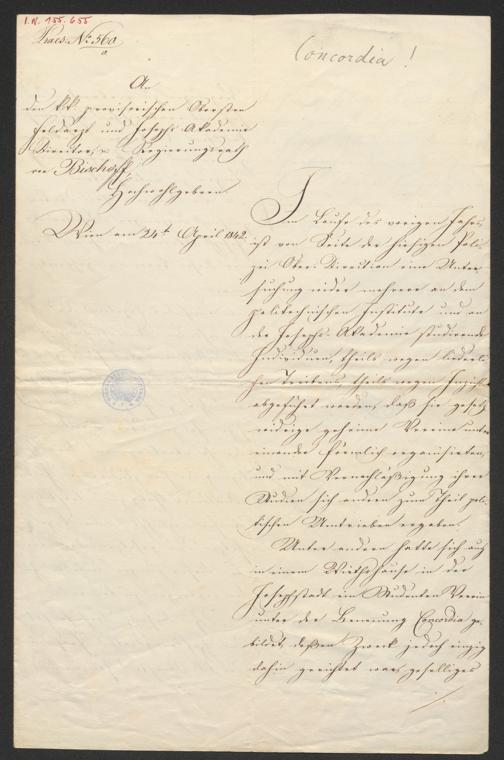 I.N. 155.655
Praes. Nr. 560
Concordia!
An
den k.k. provisorischen Obersten
Feldarzt und Josephs Akademie
Director, Regierungsrath
Bischoff,
Hochwohlgeboren
Wien am 24t April 1842.
Im Laufe des vorigen Jahres
ist von Seite der hiesigen Poli-
zei Ober-Direction eine Unter-
suchung wider mehrere an dem
politechnischen Institute und an
der Josephs-Akademie studirende
Individuen, theils wegen liederli-
chen Treibens, theils wegen Inzichten
abgeführt worden, daß sie gesetz-
widrige geheime Vereine unter
einander förmlich organisirten,
und mit Vernachläßigung ihrer
Studien sich andern zum Theil poli-
tischen Umtrieben ergaben.
Unter andern hatte sich auch
in einem Wirthshause in der
Josephstadt ein Studenten Verein
unter der Benennung Concordia ge-
bildet, deßen Zweck jedoch einzig
dahin gerichtet war, geselliges